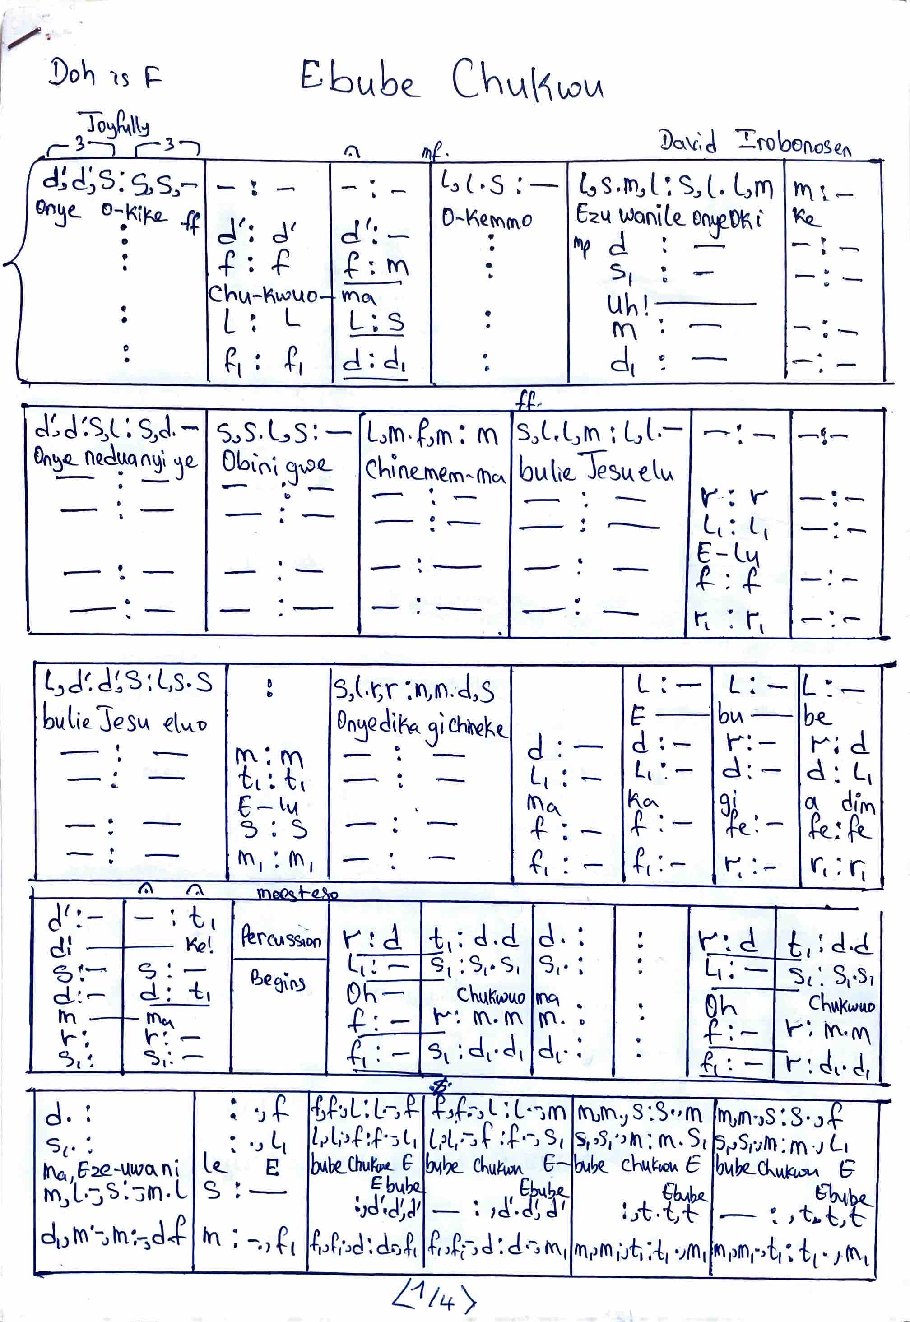 Doh is F
Ebube Chukwu
Joyfully
3 3
mf.
David Irobonosen
d',d',s:s,s,– | – : – | – : – | l,l.s : – | l,s.m,l : s,l.l,m | m : –
Onye O-kike ff O-kemmo Ezu wanile onyeOki ke
: | d' : d' | d' : – | : | mp d : – | – : –
: | f : f | f : m | : | s₁ : – | – : –
Chu-kwuo- ma Uh!
: | l : l | l : s | : | m : – | – : –
: | f₁ : f₁ | d : d₁ | : | d₁ : – | – : –
ff.
d',d'.s,l : s,d.– | s,s.l,s : – | l,m.f,m : m | s,l.l,m : l,l.– | – : – | – : –
Onye neduanyi ye Obini gwe Chinemem-ma bulie Jesu elu
– : – | – : – | – : – | – : – | r : r | – : –
– : – | – : – | – : – | – : – | l₁ : l₁ | – : –
E-lu
– : – | – : – | – : – | – : – | f : f | – : –
– : – | – : – | – : – | – : – | r₁ : r₁ | – : –
l,d'.d',s : l,s.s | : | s,l.r,r : m,m.d,s | | l : – | l : – | l : –
bulie Jesu eluo Onyedika gi chineke E bu be
– : – | m : m | – : – | d : – | d : – | r : – | r : d
– : – | t₁ : t₁ | – : – | l₁ : – | l₁ : – | d : – | d : l₁
E-lu ma ka gi a dim
– : – | s : s | – : – | f : – | f : – | fe : – | fe : fe
– : – | m₁ : m₁ | – : – | f₁ : – | f₁ : – | r₁ : – | r₁ : r₁
maesteso
d' : – | – : t₁ | Percussion | r : d | t₁ : d.d | d. : | : | r : d | t₁ : d.d
di ke!
s : – | s : – | Begins | l₁ : – | s₁ : s₁.s₁ | s₁. : | : | l₁ : – | s₁ : s₁.s₁
d : – | d : t₁
m ma Oh Chukwuo ma Oh Chukwuo
r : | r : – | f : – | r : m.m | m. : | : | f : – | r : m.m
s₁ : | s₁ : – | f₁ : – | s₁ : d₁.d₁ | d₁. : | : | f₁ : – | r : d₁.d₁
d. : | : .,f | f,f.,l : l.–,f | f,f.–,l : l.–,m | m,m.,s : s.,m | m,m.–,s : s.,f
s₁. : | : .,l₁ | l₁,l₁.,f : f.–,l₁ | l₁,l₁.–,f : f.–,s₁ | s₁,s₁.,m : m.s₁ | s₁,s₁.,m : m.,l₁
ma, Eze-uwani le E bube Chukwu E bube chukwu E- bube chukwu E bube chukwu E
Ebube Ebube Ebube Ebube
m,l.–,s : –,m.l | s : – | :.,d'.d',d' | – : ,d'.d',d' | :,t.t,t | – : .,t.t,t
d₁,m.–,m : –,d.f | m : –.,f₁ | f₁,f₁.,d : d.,f₁ | f₁,f₁.–,d : d.–,m₁ | m₁,m₁.,t₁ : t₁.,m₁ | m₁,m₁.,t₁ : t₁.,m₁
<1/4>